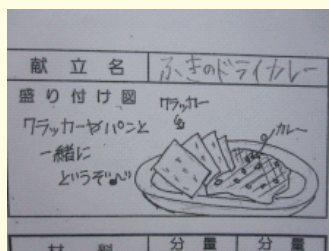 献立名 ふきのドライカレー
盛り付け図
クラッカー
クラッカーやパンと
一緒に
どうぞ♪
カレー
材料 分量 分量